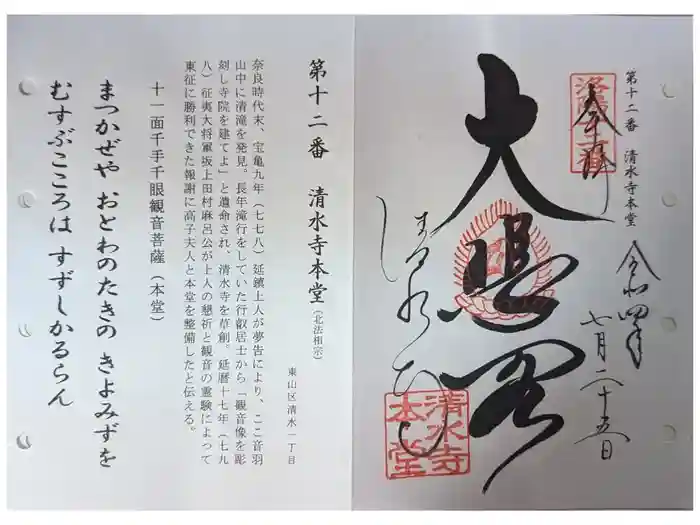 第十二番 清水寺本堂
奉拝
洛陽十二番
令和四年
七月二十五日
大悲閣
きよみづ
清水寺
本堂
第十二番 清水寺本堂(北法相宗)
東山区清水一丁目
奈良時代末、宝亀九年(七七八)延鎮上人が夢告により、ここ音羽
山中に清滝を発見。長年滝行をしていた行叡居士から「観音像を彫
刻し寺院を建てよ」と遺命され、清水寺を草創。延暦十七年(七九
八)征夷大将軍坂上田村麻呂公が上人の懇祈と観音の霊験によって
東征に勝利できた報謝に高子夫人と本堂を整備したと伝える。
十一面千手千眼観音菩薩(本堂)
まつかぜや おとわのたきの きよみずを
むすぶこころは すずしかるらん